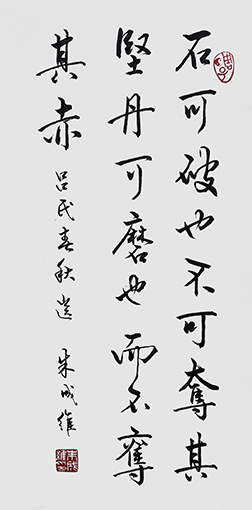 石可破也不可奪其
堅丹可磨也而不奪
其赤 呂氏春秋選 朱成維